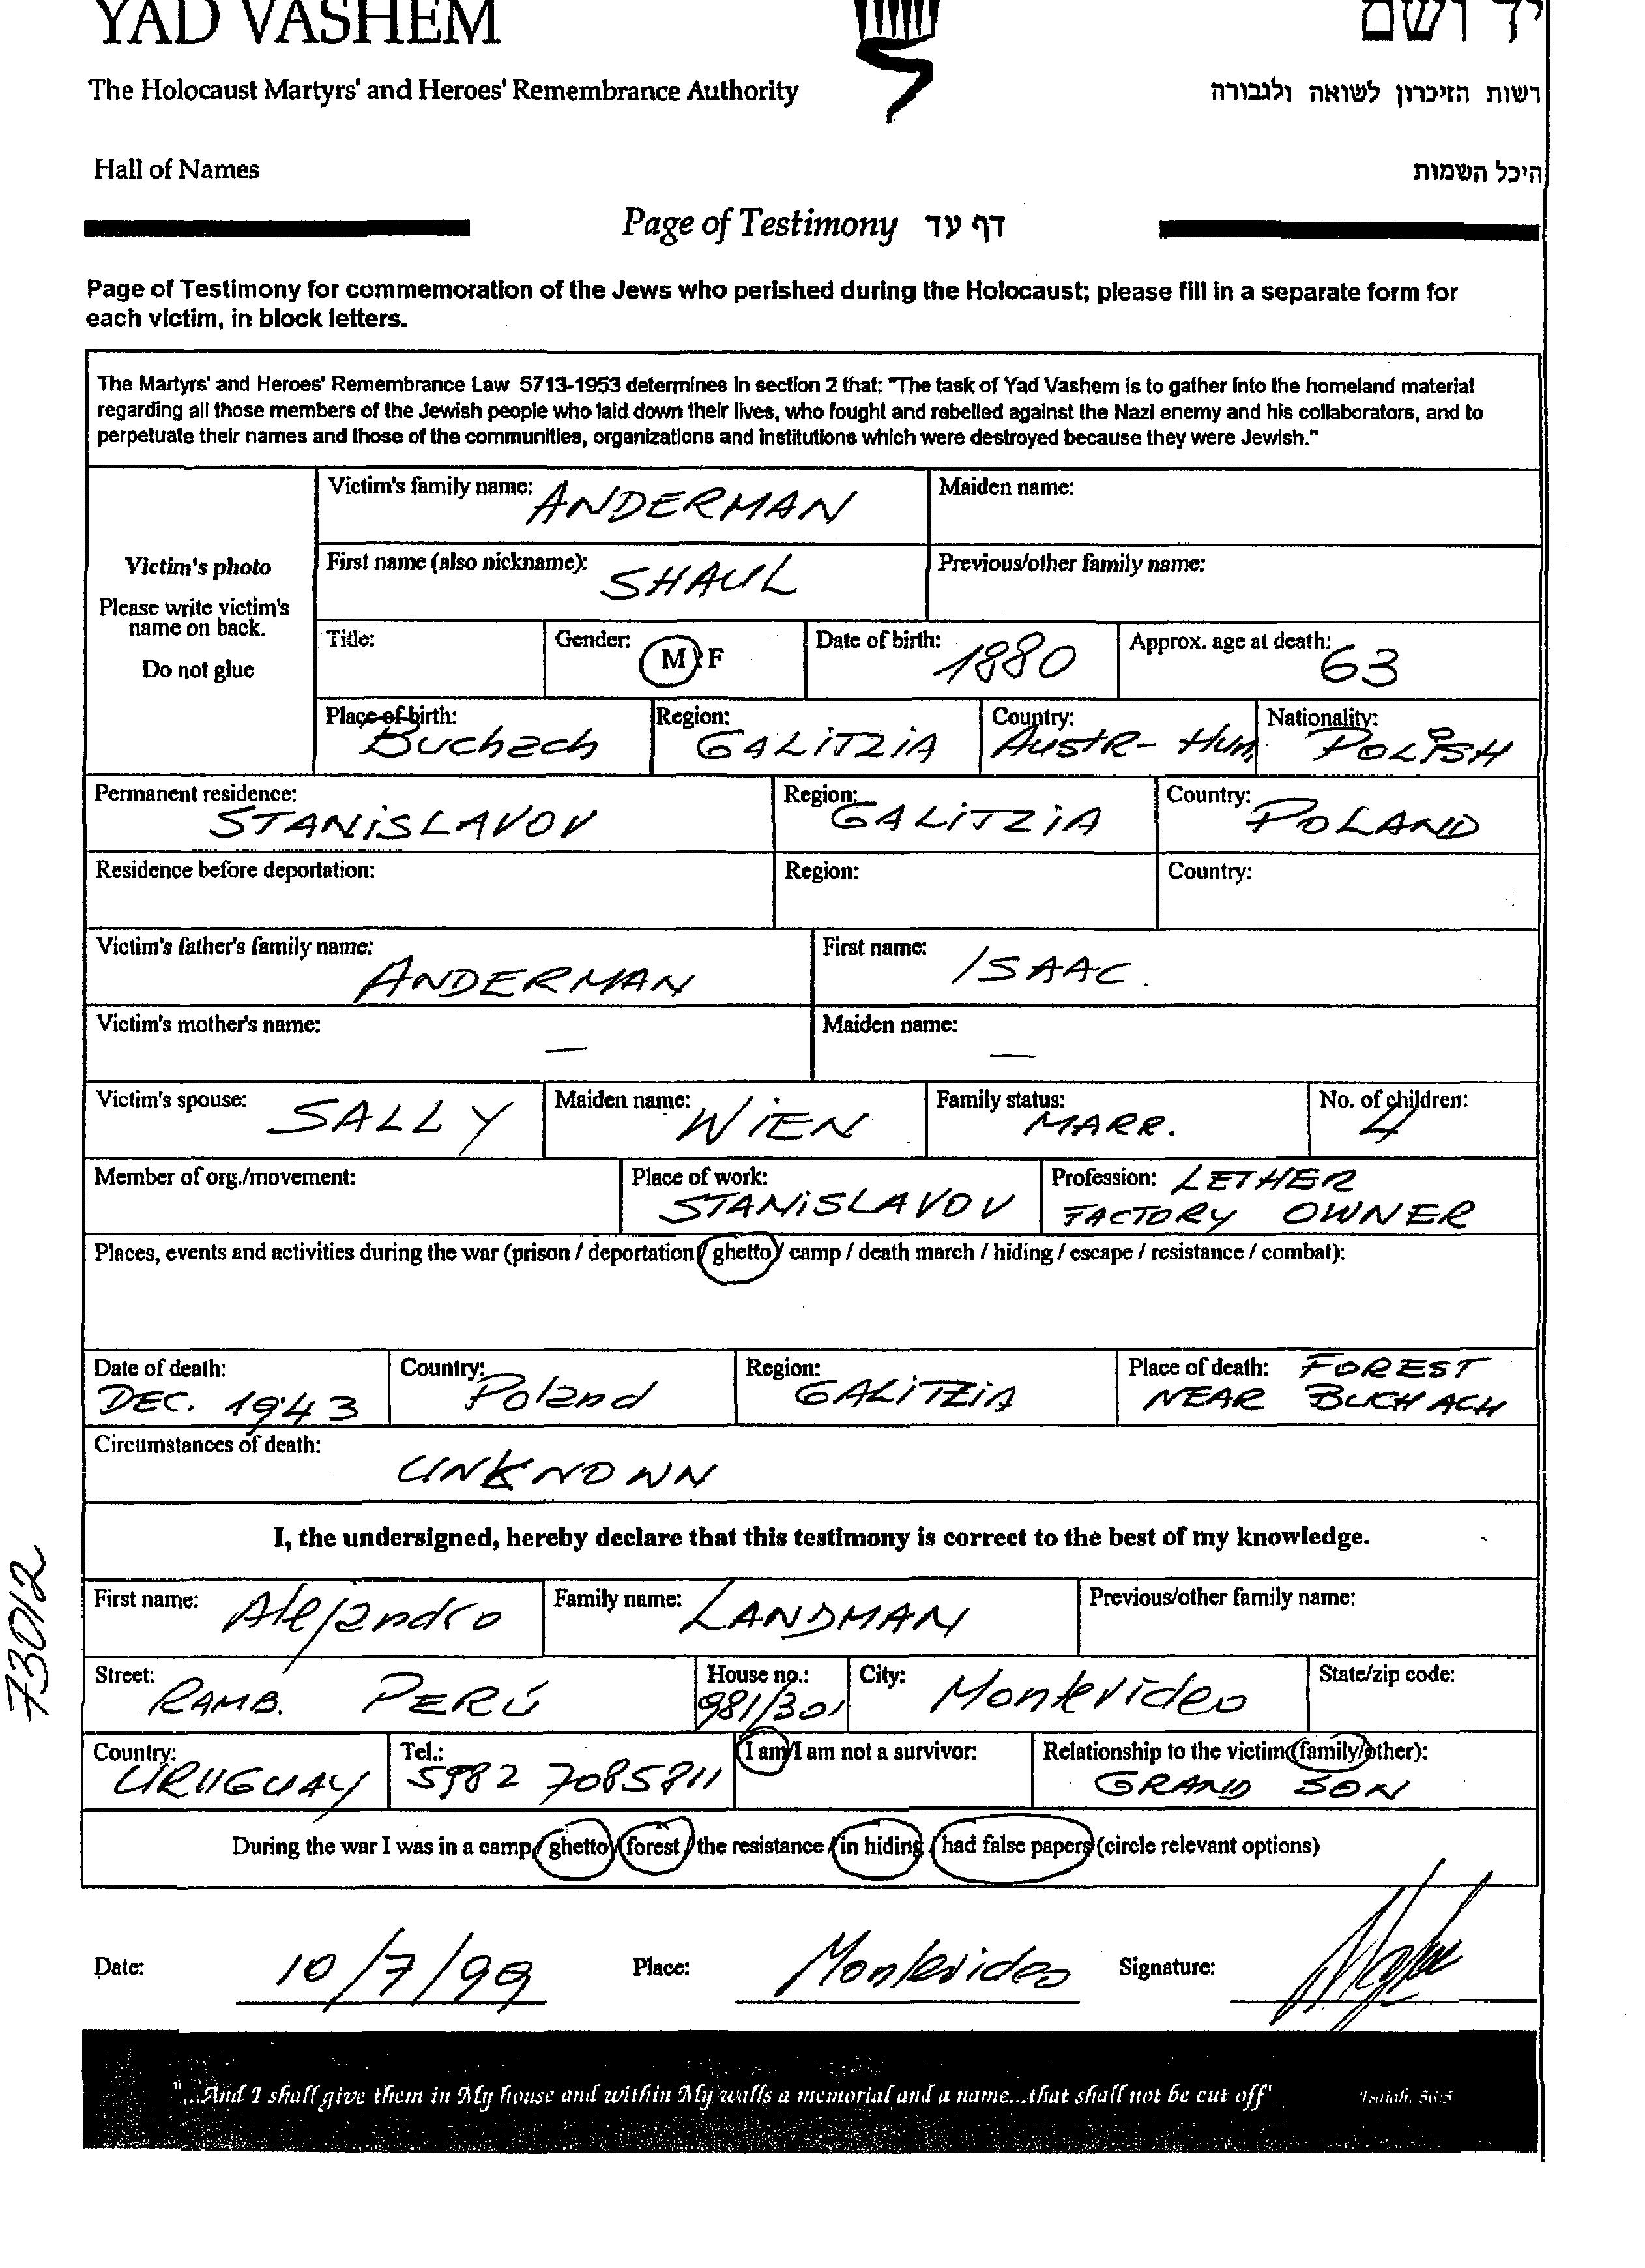 YAD VASHEM
יד ושם
The Holocaust Martyrs' and Heroes' Remembrance Authority
רשות הזיכרון לשואה ולגבורה
Hall of Names
היכל השמות
Page of Testimony דף עד
Page of Testimony for commemoration of the Jews who perished during the Holocaust; please fill in a separate form for
each victim, in block letters.
The Martyrs' and Heroes' Remembrance Law 5713-1953 determines in section 2 that: "The task of Yad Vashem is to gather into the homeland material
regarding all those members of the Jewish people who laid down their lives, who fought and rebelled against the Nazi enemy and his collaborators, and to
perpetuate their names and those of the communities, organizations and institutions which were destroyed because they were Jewish."
Victim's photo
Please write victim's
name on back.
Do not glue
Victim's family name: ANDERMAN
Maiden name:
First name (also nickname): SHAUL
Previous/other family name:
Title:
Gender: M F
Date of birth: 1880
Approx. age at death: 63
Place of birth: Buchach
Region: GALiTZiA
Country: AustR- Hun.
Nationality: POLISH
Permanent residence: STANiSLAVOV
Region: GALiTZiA
Country: POLAND
Residence before deportation:
Region:
Country:
Victim's father's family name: ANDERMAN
First name: ISAAC.
Victim's mother's name: —
Maiden name: —
Victim's spouse: SALLY
Maiden name: WiEN
Family status: MARR.
No. of children: 4
Member of org./movement:
Place of work: STANiSLAVOV
Profession: LETHER
FACTORY OWNER
Places, events and activities during the war (prison / deportation / ghetto / camp / death march / hiding / escape / resistance / combat):
Date of death: DEC. 1943
Country: Poland
Region: GALiTZiA
Place of death: FOREST
NEAR BUCHACH
Circumstances of death: UNKNOWN
I, the undersigned, hereby declare that this testimony is correct to the best of my knowledge.
73012
First name: Alejandro
Family name: LANDMAN
Previous/other family name:
Street: RAMB. PERÚ
House no.: 981/301
City: Montevideo
State/zip code:
Country: URUGUAY
Tel.: 5982 7085811
I am/I am not a survivor:
Relationship to the victim (family/other): GRAND SON
During the war I was in a camp/ ghetto / forest / the resistance / in hiding / had false papers (circle relevant options)
Date: 10/7/99
Place: Montevideo
Signature:
"...And I shall give them in My house and within My walls a memorial and a name...that shall not be cut off"
Isaiah, 56:5